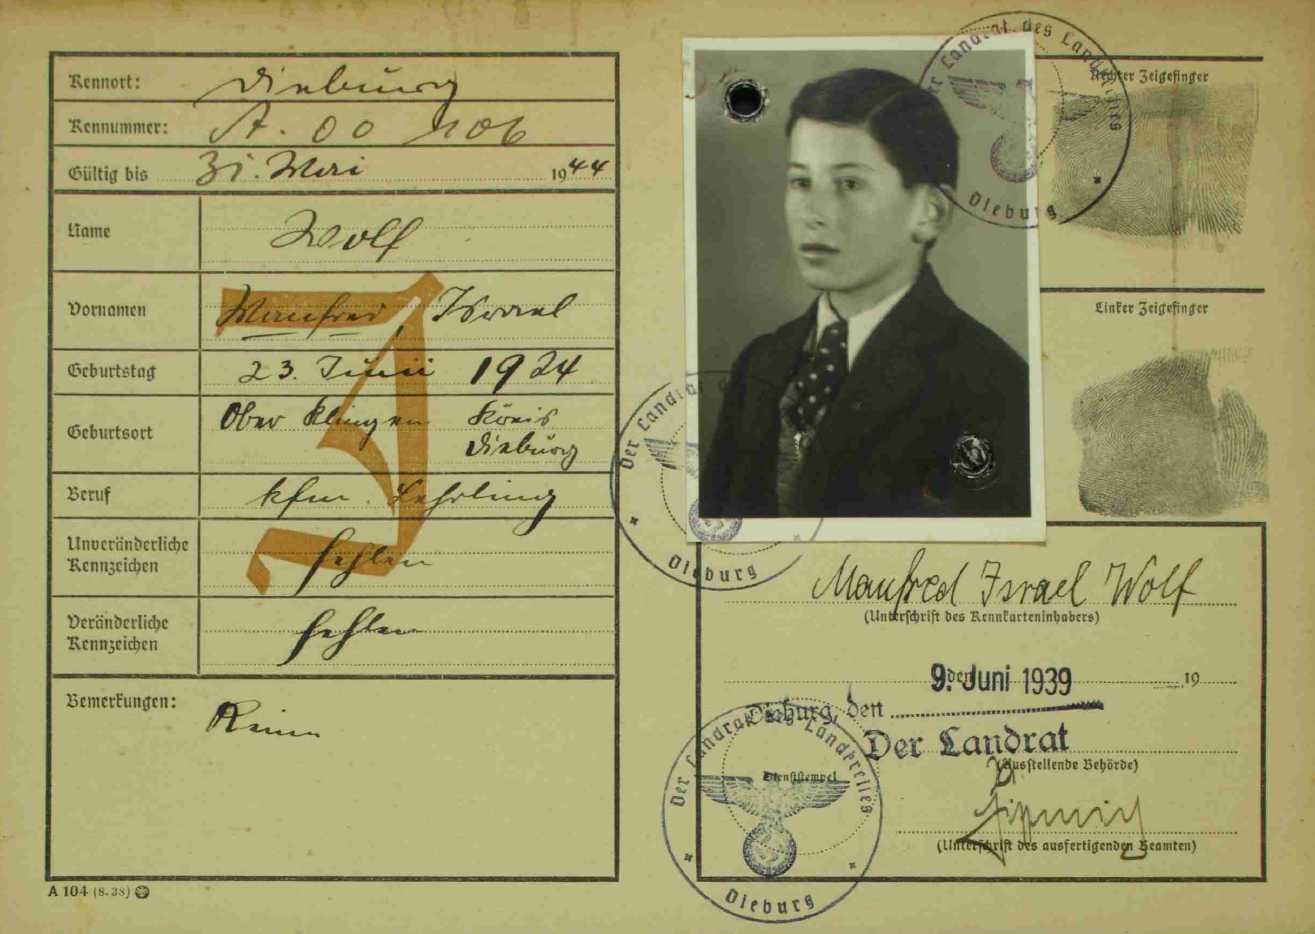 Kennort: Dieburg
Kennummer: A. 00
Gültig bis 31. Mai 1944
Name Wolf
Vornamen Manfred, Israel
Geburtstag 23. Juni 1924
Geburtsort Ober Klingen Kreis
Dieburg
Beruf kfm. Lehrling
Unveränderliche
Kennzeichen fehlen
Veränderliche
Kennzeichen fehlen
Bemerkungen: Keine
A 104 (8. 38)
J
Der Landrat des Landkreises
Dieburg
Rechter Zeigefinger
Linker Zeigefinger
Der Landrat des
Dieburg
Manfred Israel Wolf
(Unterschrift des Kennkarteninhabers)
den 19
9. Juni 1939
Dieburg, den
Der Landrat
(Ausstellende Behörde)
Der Landrat des Landkreises
Dienststempel
Dieburg
(Unterschrift des ausfertigenden Beamten)